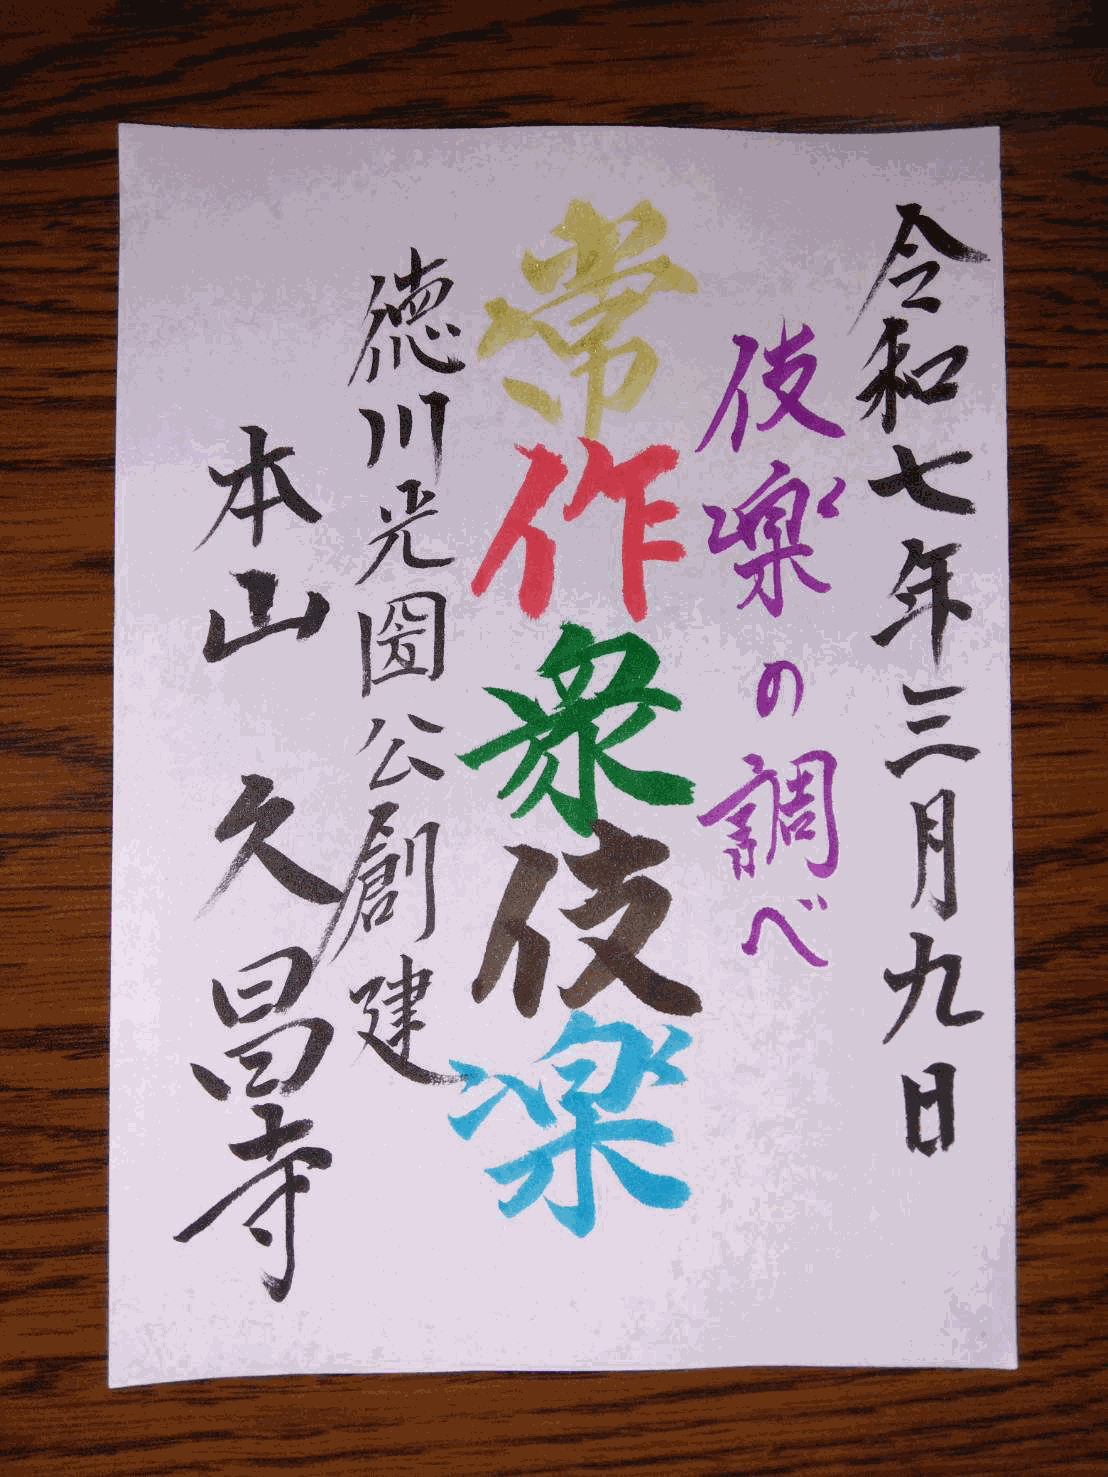 令和七年三月九日
伎楽の調べ
常作衆伎楽
徳川光圀公創建
本山 久昌寺